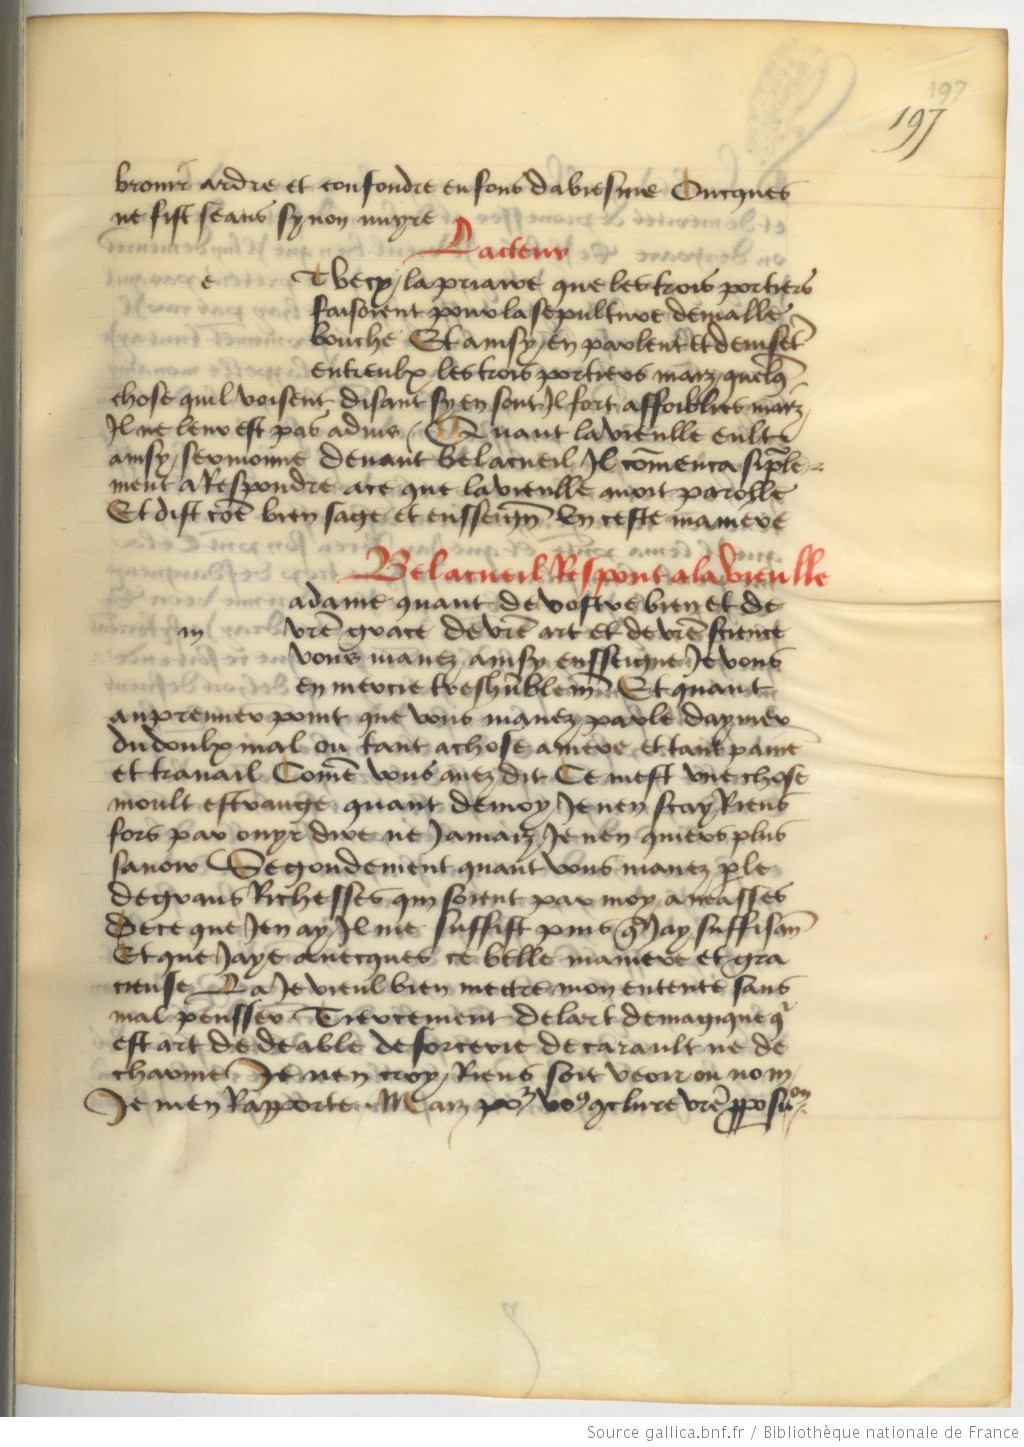 197
197
brouir ardre et confondre en fons dabiesme Oncques
ne fist seans sy non nuyre
Lacteur
e T vecy la priaire que les trois portiers
faisoient pour la sepulture de malle
bouche Et ainsy en parlent et devisēt
entreulx les trois portiers maiz quelq̄
chose quil voisent disant sy en sont Il fort affoiblies maiz
Il ne leur est pas advis Quant la vieulle eult
ainsy sermonne devant belacueil Il cōmenca simple
ment a Respondre ace que la vieulle avoit parolle
Et dist cōe bien sage et ensseign̄ En ceste maniere
Belacueil Respont a la vieulle
m adame quant de vostre bien et de
vrē grace de vrē art et de vrē science
vous mavez ainsy ensseigne Je vous
en mercie treshūblem̄ Et quant
au premier point que vous mavez parle daymer
du doulx mal ou tant a chose amere et tant paine
et travail Comē vous avez dit Ce mest une chose
moult estrange quant de moy Je nen scay Riens
fors par ouyr dire ne Jamaiz Je nen quiers plus
savoir Segondement quant vous mavez ple
de grans Richesses qui soient par moy amasses
De ce que Jen ay Il me suffist puis q̄ Jay suffisan̄
Et que Jaye avecques ce belle maniere et gra
cieuse La Je vieul bien mettre mon entente sans
mal pensser Tiercement de lart de magique q̄
est art de deable de sorcerie de carault ne de
charme Je nen croy Riens soit veoir ou nom
Je men Rapporte Maiz po² vo9 9clure vrē pposuon
Source gallica.bnf.fr / Bibliothèque nationale de France